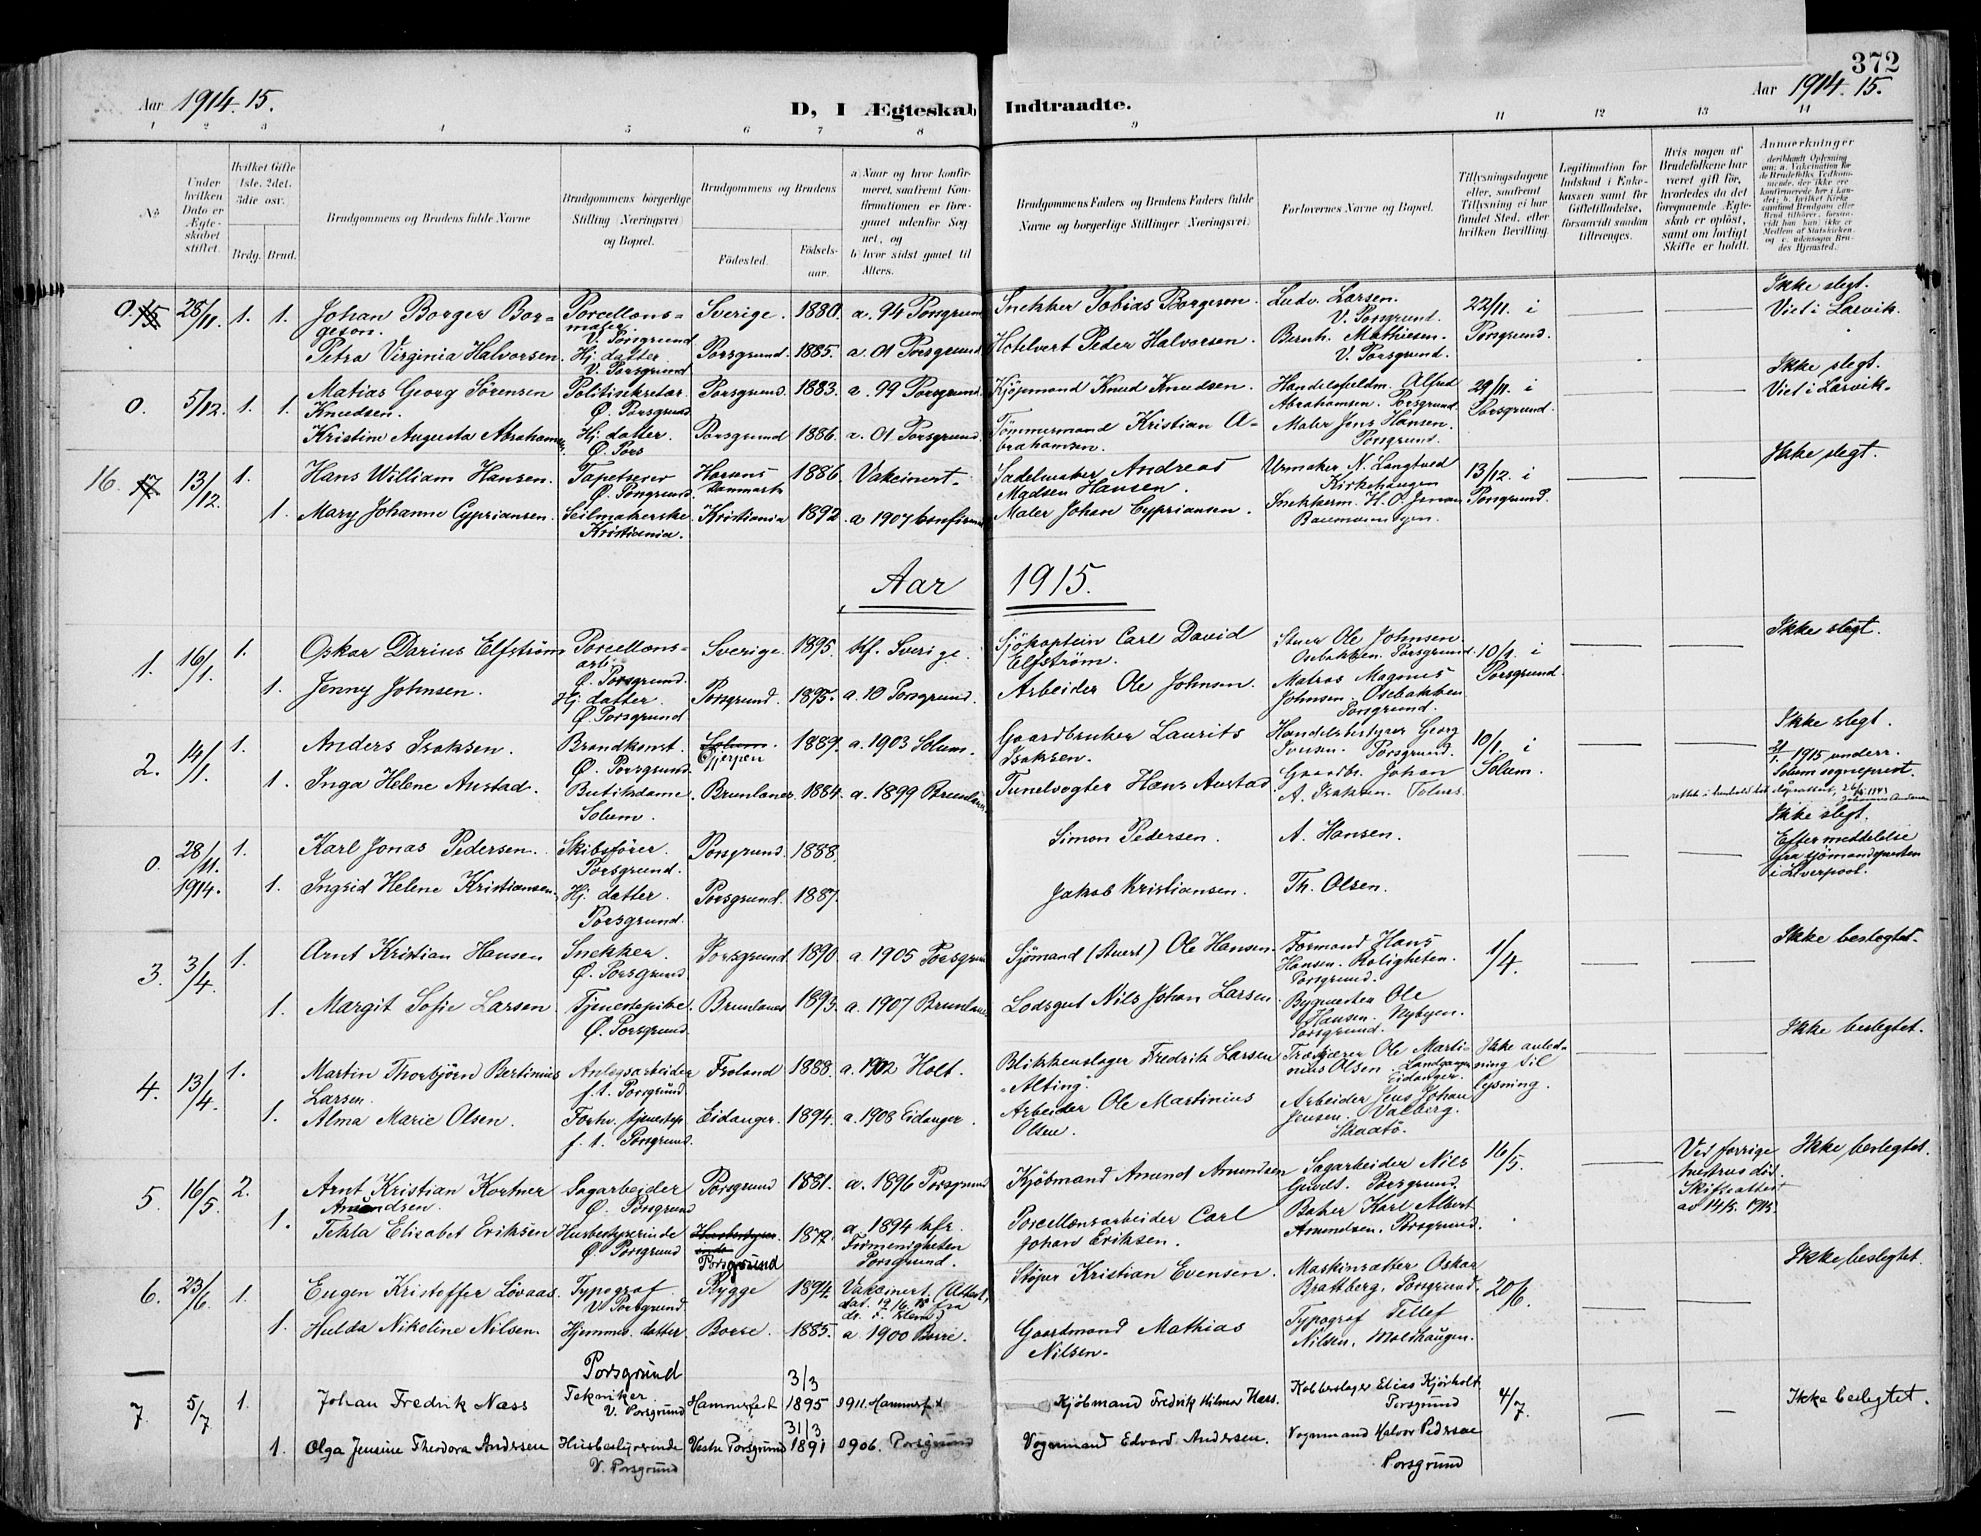 372
Aar 1914-15.
D, I Ægteskab Indtraadte.
Aar 1914-15.
1 2 3 4 5 6 7 8 9 11 12 13 14
No.
Under hvilken Dato er Ægteskabet stiftet.
Hvilket Gifte 1ste. 2det. 3die osv.
Brdg. Brud.
Brudgommens og Brudens fulde Navne
Brudgommens borgerlige Stilling Næringsvei og Bopæl.
Brudgommens og Brudens
Fødested.
Fødselsaar.
a Naar og hvor konfirmeret, saafremt Konfirmationen er foregaaet udenfor Sognet, og
b hvor sidst gaaet til Alters.
Brudgommens Faders og Brudens Faders fulde Navne og borgerlige Stillinger Næringsvei.
Forlovernes Navne og Bopæl.
Tillysningsdagene eller, saafremt Tillysning ei har fundet Sted, efter hvilken Bevilling.
Legitimation for Indskud i Enkekassen samt for Giftetilladelse, forsaavidt saadan tiltrænges.
Hvis nogen af Brudefolkene har været gift før, hvorledes da det foregaaende Ægteskab er opløst, samt om lovligt Skifte er holdt.
Anmerkninger
0. 15 28/11. 1. 1. Johan Borger Borgeson. Porcellænsmaler. V. Porsgrund Sverige. 1880. a. 94 Porsgrund Snekker Tobias Borgeson. Ludv. Larsen. V. Porsgrund. 22/11. i Porsgrund. Ikke slegt. Viet i Larvik.
Petra Virginia Halvorsen. Hj. datter. V. Porsgrund Porsgrund. 1885. a. 01 Porsgrund Hotelvert Peder Halvorsen. Bernh. Mathiesen. V. Porsgrund.
0. 5/12. 1. 1. Matias Georg Sørensen Knudsen. Politisekretær Ø. Porsgrund Porsgrund. 1883. a. 99 Porsgrund. Kjøpmand Knud Knudsen. Handelsfuldm. Alfred Abrahamsen. Porsgrund. 29/11. i Porsgrund. Ikke slegt. Viet i Larvik.
Kristine Augusta Abrahamsen Hj. datter. Ø. Pors Porsgrund 1886. a. 01 Porsgrund. Tømmermand Kristian Abrahamsen. Maler Jens Hansen. Porsgrund.
16. 17 13/12. 1. Hans William Hansen. Tapetserer Ø. Porsgrund. Horsens Danmark 1886. Vakcinert. Sadelmaker Andreas Madsen Hansen. Urmaker N. Langtved Kirkehaugen 13/12. i Porsgrund. Ikke slegt.
1. Mary Johanne Cypriansen. Seilmakerske Kristiania. Kristiania 1892. a 1907 Maler Johan Cypriansen. Snekkerm. H. O. Jensen
Aar 1915.
1. 16/1. 1. Oskar Darius Elfstrøm Porcellænsarb. Ø. Porsgrund. Sverige. 1895. kf. Sverige. Sjøkaptein Carl David Elfstrøm. Stuer Ole Johnsen. Osebakken. Porsgrund. 10/1. i Porsgrund. Ikke slegt.
1. Jenny Johnsen. Hj. datter. Ø. Porsgrund Porsgrund. 1895. a. 10 Porsgrund. Arbeider Ole Johnsen. Matros Magnus Johnsen. Osebakken Porsgrund.
2. 14/1. 1. Anders Isaksen. Brandkonst. Ø. Porsgrund. Solum. Gjerpen 1889. a. 1903 Solum. Gaardbruker Laurits Isaksen. Handelsbestyrer Georg Porsgrund. 10/1. i Solum. Ikke slegt. 21/1. 1915 underr. Solum sogneprest.
1. Inga Helene Austad. Butikdame Solum. Brunlanes 1884. a. 1899 Brunlanes Tunelvogter Hans Austad Gaardbr. Johan A. Isaksen. Solum
0. 28/11. 1914. 1. Karl Jonas Pedersen. Skibsfører. Porsgrund. Porsgrund. 1888. Simon Pedersen. A. Hansen. Ikke slegt. Efter meddelelse fra sjømandspresten i Liverpool.
1. Ingrid Helene Kristiansen. Hj. datter. Porsgrund. Porsgrund. 1887. Jakob Kristiansen. Th. Olsen.
3. 3/4. 1. Arnt Kristian Hansen Snekker. Ø. Porsgrund. Porsgrund 1890. a 1905 Porsgrund Sjømand (Stuert) Ole Hansen. Formand Hans Hansen. Roligheten. Porsgrund. 1/4. Ikke beslegtet.
1. Margit Sofie Larsen. Tjenestepike. Ø. Porsgrund. Brunlanes 1893. a. 1907 Brunlanes Lodsgut Nils Johan Larsen Bygmester Ole Hansen. Nybyen. Porsgrund.
4. 13/4. 1. Martin Thorbjørn Bertinius Larsen. Anlegsarbeider f. t. Porsgrund Froland 1888. a. 1902 Holt. Blikkenslager Fredrik Larsen Alting. Træskjærer Ole Martinius Olsen. Landgangen Eidanger. Ikke anledning til lysning. Ikke beslegtet.
1. Alma Marie Olsen. Forhv. tjenestep. f. t. Porsgrund. Eidanger. 1894. a. 1908 Eidanger. Arbeider Ole Martinius Olsen. Arbeider Jens Johan Jensen. Valberg. Skaatø.
5. 16/5. 2. Arnt Kristian Kortner Amundsen. Sagarbeider Ø. Porsgrund Porsgrund 1881. a. 1896 Porsgrund Kjøbmand Amund Amundsen Sagarbeider Nils Porsgrund. 16/5. Ved forrige hustrus død. Skifteattest av 14/5. 1915. Ikke beslegtet.
1. Tekla Elisabet Eriksen Husbestyrerinde Ø. Porsgrund Porsgrund 1879. a. 1894 kfr. Frimenigheten Porsgrund. Porcellænsarbeider Carl Johan Eriksen. Baker Karl Albert Amundsen. Porsgrund.
6. 23/6. 1. Eugen Kristoffer Løvaas. Typograf V. Porsgrund. Rygge 1894. Vaksinert. (Attest, dat. 19/6. 15 fra Støper Kristian Evensen. Maskinsætter Oskar Brattberg. Porsgrund. 20/6. Ikke beslegtet.
1. Hulda Nikoline Nilsen. Hjemmev. datter Porsgrund Borre. 1885. a 1900 Borre. Gaardmand Mathias Nilsen. Typograf Tellef Nilsen.
7. 5/7 1. Johan Fredrik Næss Tekniker. V. Porsgrund Hammerfest 3/3 1895 1911. Hammerf. Kjøbmand Fredrik Hilmar Næss. Kobberslager Elias Kjørholt Porsgrund 4/7. Ikke beslegtet.
1. Olga Jensine Theodora Andersen Husbestyrerinde V. Porsgrund Vestre Porsgrund 31/3 1891 1906. Porsgrund Vognmand Edvard Andersen. Vognmand Halvor Pedersen Porsgrund